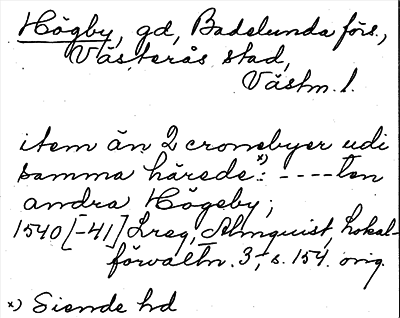 Högby, gd, Badelundaförs.,
Västerås stad,
Västm. l.
item än 2 cronebyer udi
samma härede x): ----ten
andra Högeby;
1540 [-41] Lreg, Almquist, Lokal-
förvaltn. 3, s. 154. orig.
x) Siende hd